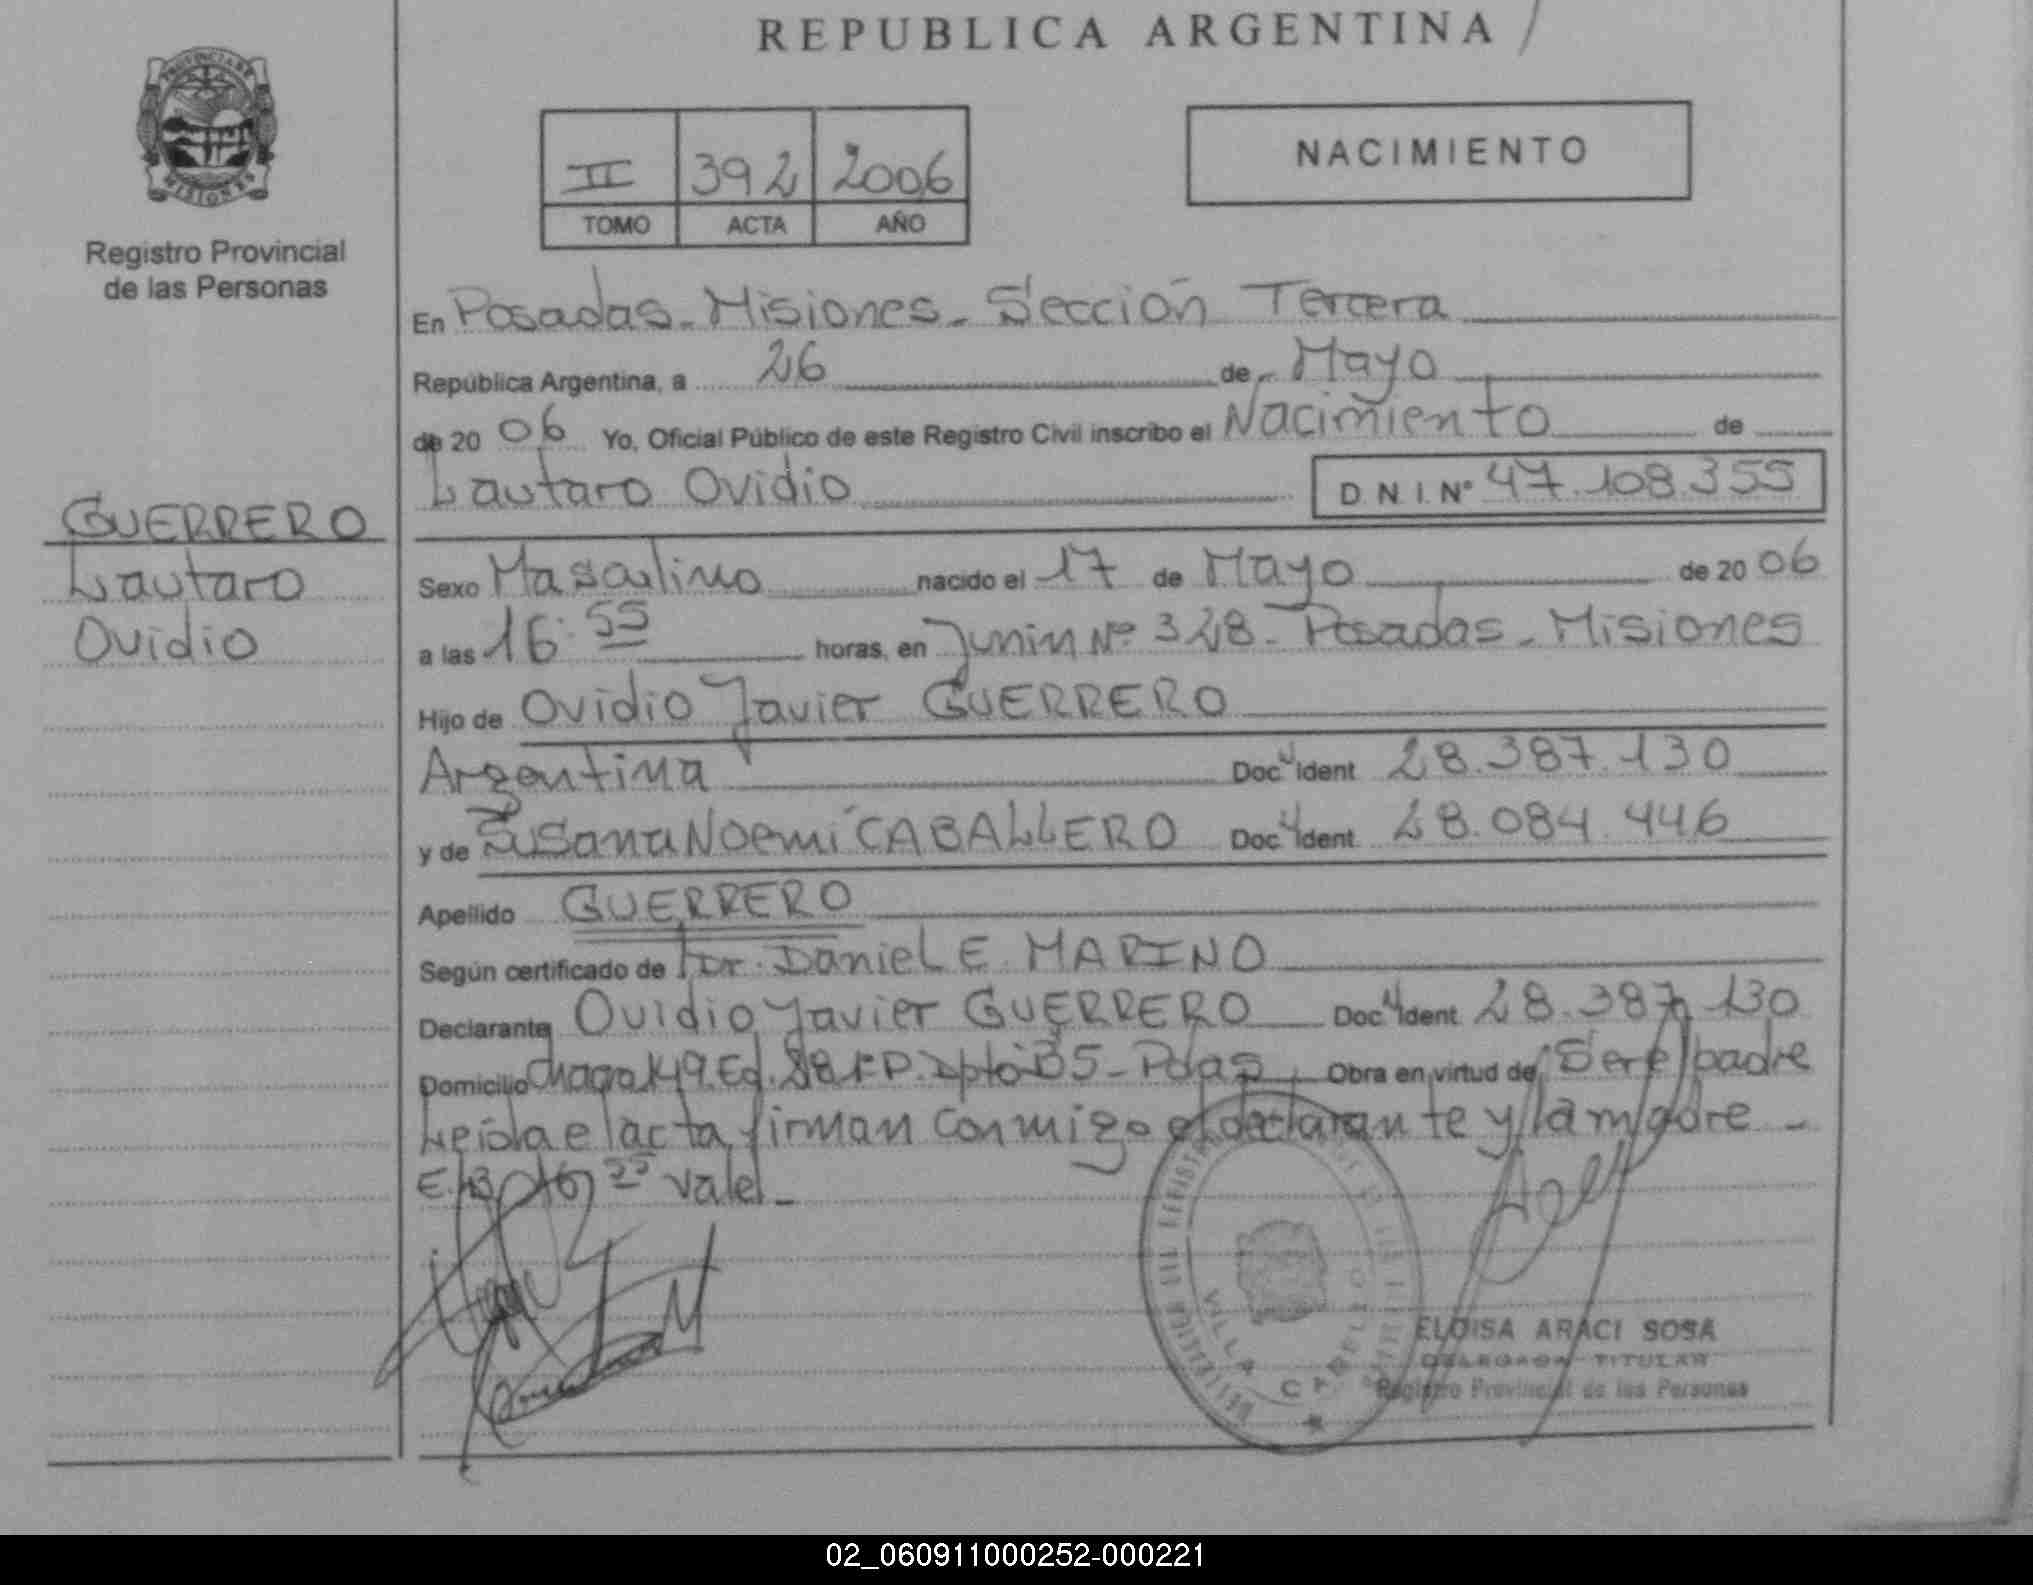 REPUBLICA ARGENTINA
PROVINCIA DE
MISIONES
Registro Provincial
de las Personas
II 392 2006
TOMO ACTA AÑO
NACIMIENTO
En Posadas - Misiones - Sección Tercera
República Argentina, a 26 de Mayo
de 20 06 Yo, Oficial Público de este Registro Civil inscribo el Nacimiento de
Lautaro Ovidio D.N.I.Nº 47.108.355
GUERRERO
Lautaro
Ovidio
Sexo Masculino nacido el 17 de Mayo de 20 06
a las 16:55 horas, en Junin Nº 328 - Posadas - Misiones
Hijo de Ovidio Javier GUERRERO
Argentina Doc. Ident 28.387.130
y de Susana Noemí CABALLERO Doc. Ident. 28.084.446
Apellido GUERRERO
Según certificado de Dr. Daniel E. MARINO
Declarante Ovidio Javier GUERRERO Doc. Ident 28.387.130
Domicilio Ed. Dpto B5 - Pdas Obra en virtud de Ser el padre
Leida el acta, firman conmigo el declarante y la madre -
16 55 Vale -
VILLA CABELLO
ELOISA ARACI SOSA
DELEGADA TITULAR
Registro Provincial de las Personas
02_060911000252-000221